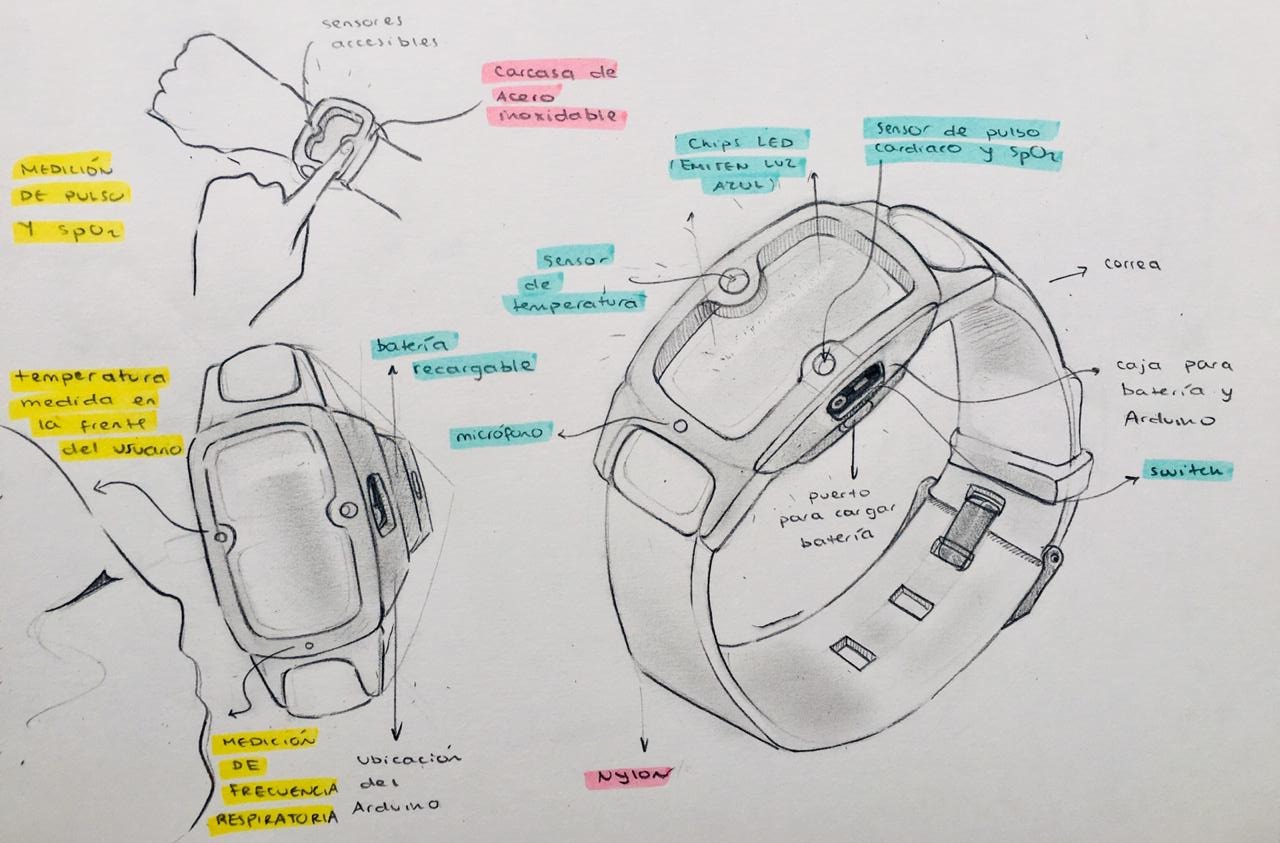 sensores
accesibles
Carcasa de
Acero
inoxidable
MEDICIÓN
DE PULSO
Y SpO2
Chips LED
(EMITEN LUZ
AZUL)
sensor de pulso
cardiaco y SpO2
sensor
de
temperatura
correa
batería
recargable
caja para
batería y
Arduino
temperatura
medida en
la frente
del usuario
micrófono
switch
puerto
para cargar
batería
MEDICIÓN
DE
FRECUENCIA
RESPIRATORIA
ubicación
del
Arduino
Nylon